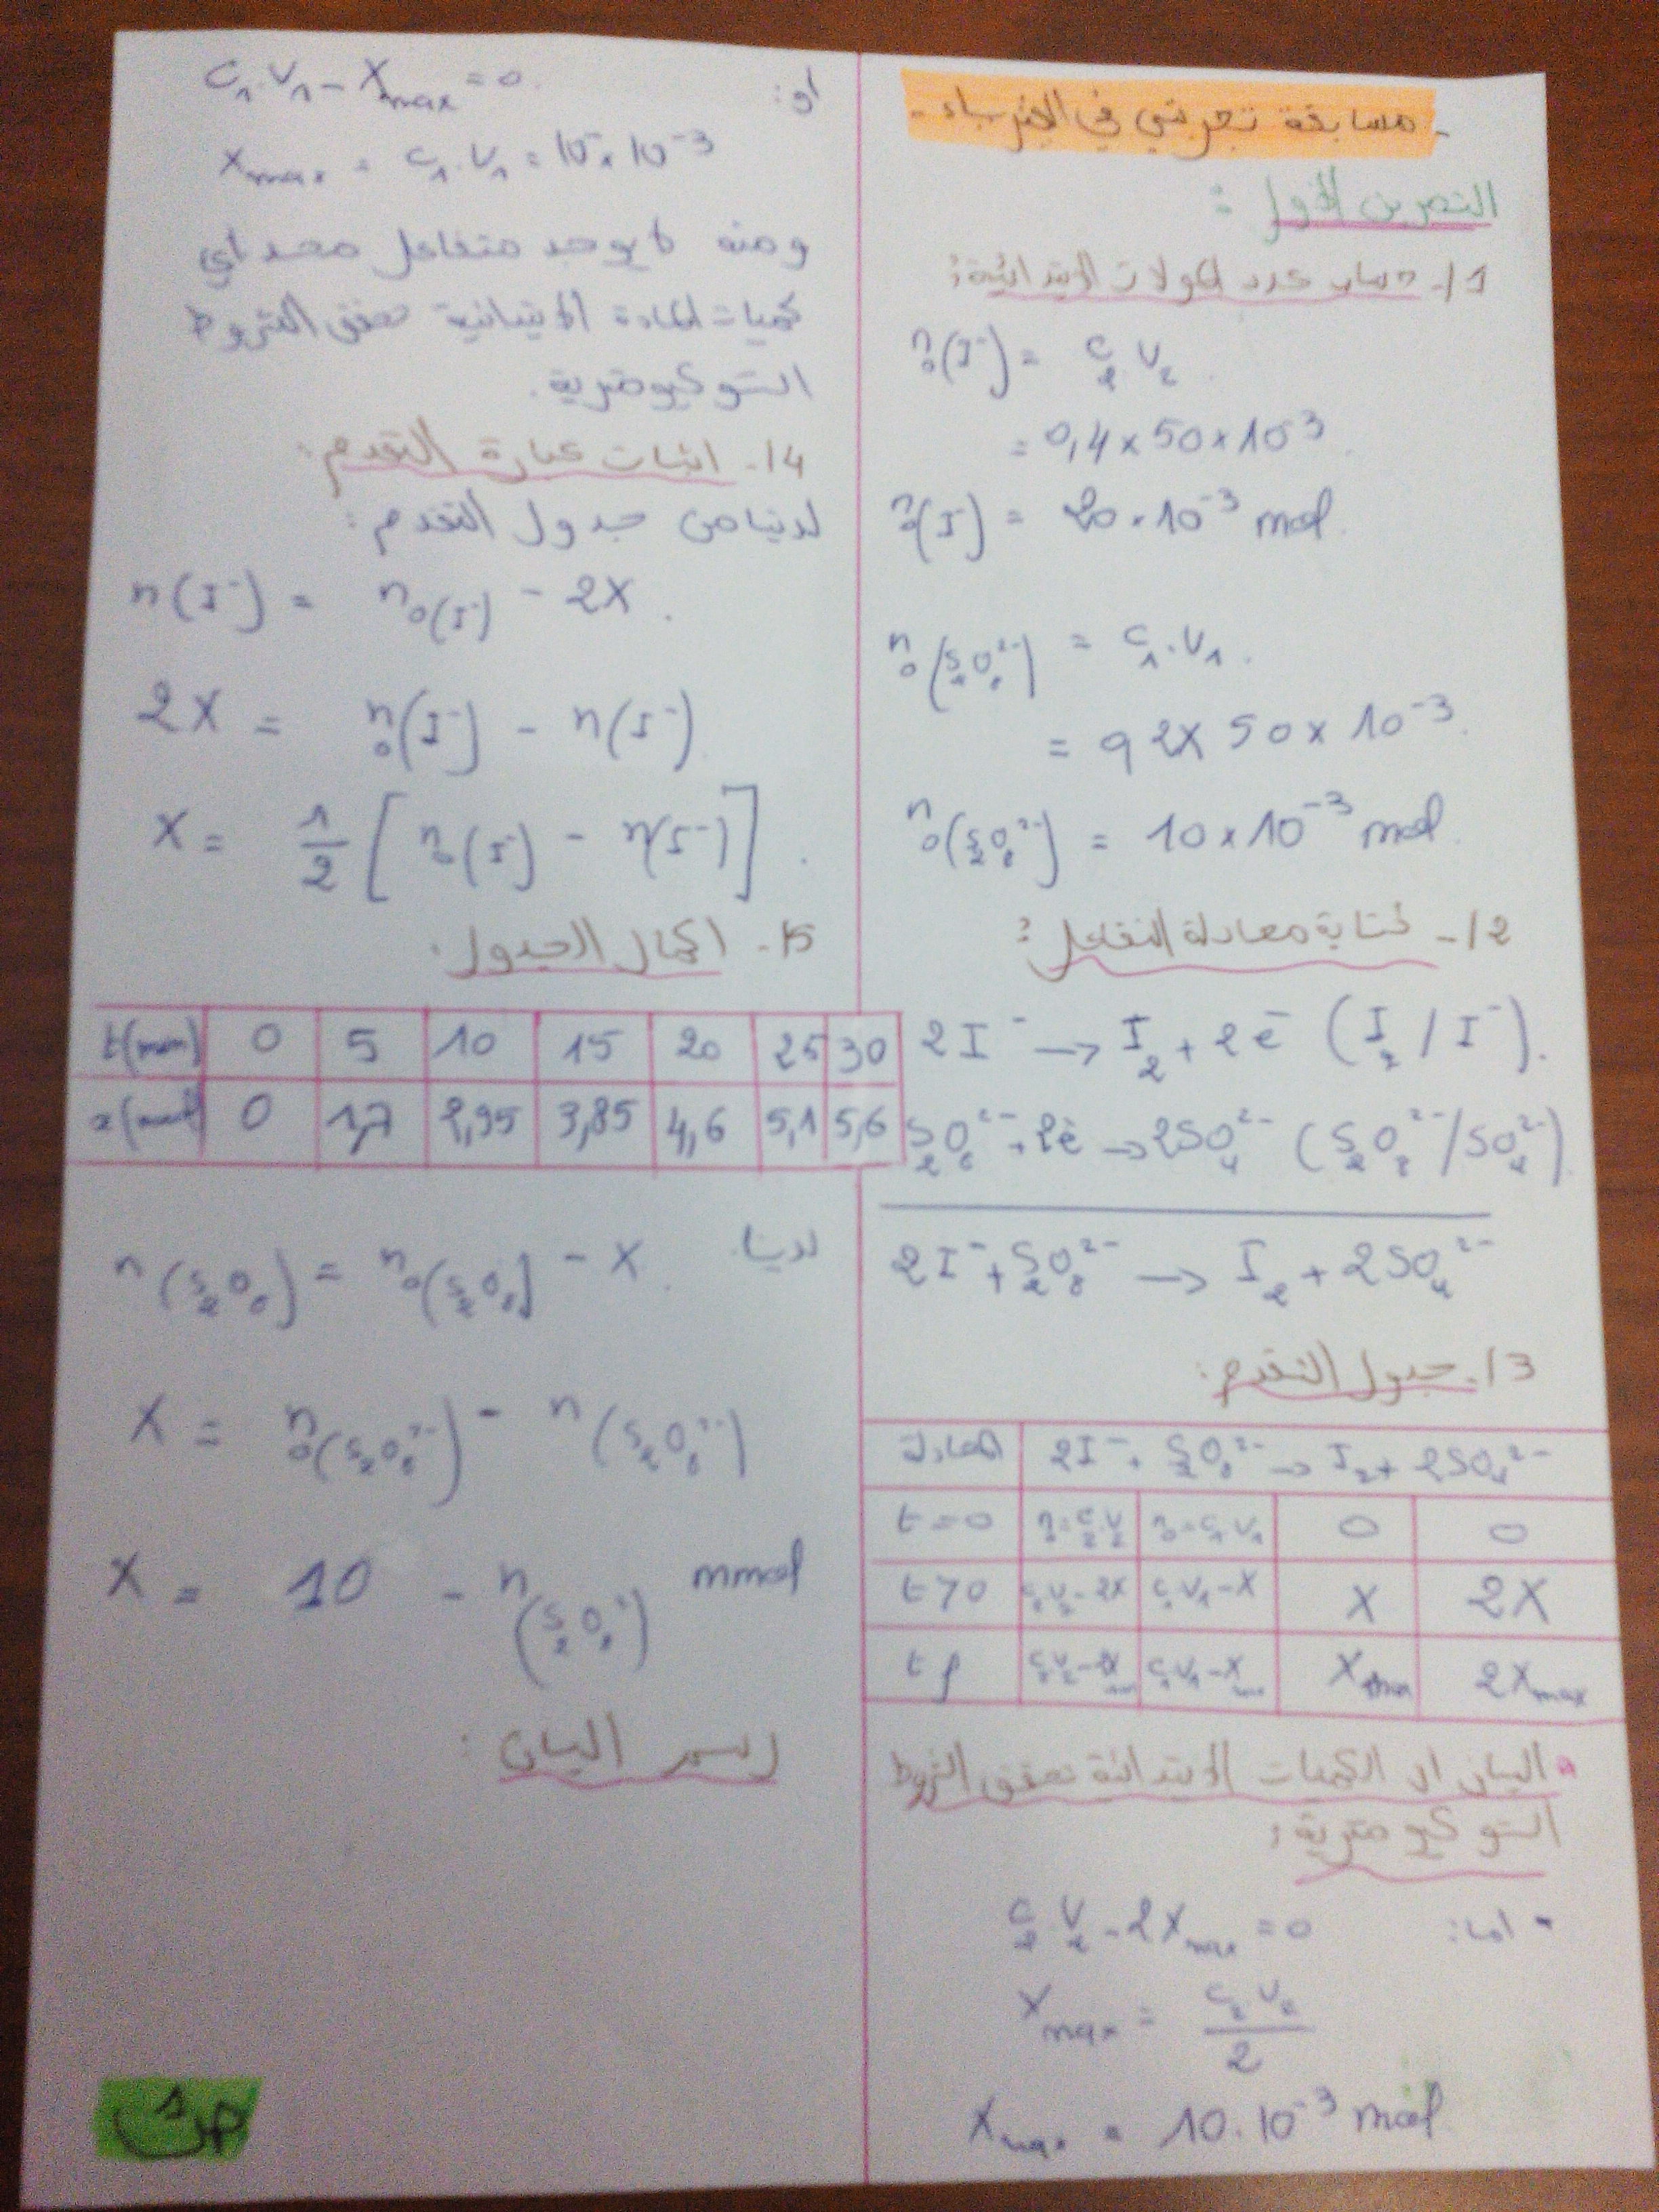 - مسابقة تجريبي في الفيزياء -
التمرين الأول :
1/- حساب عدد المولات الابتدائية:
n₀(I⁻) = C₂.V₂
= 0,4 × 50 × 10⁻³
n₀(I⁻) = 20 . 10⁻³ mol.
n₀(S₂O₈²⁻) = C₁.V₁.
= 0,2 × 50 × 10⁻³.
n₀(S₂O₈²⁻) = 10 × 10⁻³ mol.
2/- كتابة معادلة التفاعل :
2I⁻ → I₂ + 2e⁻ (I₂/I⁻).
S₂O₈²⁻ + 2e⁻ → 2SO₄²⁻ (S₂O₈²⁻/SO₄²⁻).
2I⁻ + S₂O₈²⁻ → I₂ + 2SO₄²⁻
3/- جدول التقدم :
المعادلة 2I⁻ + S₂O₈²⁻ → I₂ + 2SO₄²⁻
t=0 n₀=C₂.V₂ n₀=C₁.V₁ 0 0
t>0 C₂V₂-2X C₁V₁-X X 2X
tf C₂V₂-2Xmax C₁V₁-Xmax Xmax 2Xmax
• البيان ان الكميات الابتدائية تحقق الشروط
الستوكيومترية :
- اما: C₂V₂ - 2Xmax = 0
Xmax = C₂V₂/2
Xmax = 10.10⁻³ mol
او: C₁.V₁ - Xmax = 0.
Xmax = C₁.V₁ = 10 . 10⁻³
و منه لا يوجد متفاعل محد اي
كميات المادة الابتدائية تحقق الشروط
الستوكيومترية.
4/- اثبات عبارة التقدم :
لدينا من جدول التقدم :
n(I⁻) = n₀(I⁻) - 2X.
2X = n₀(I⁻) - n(I⁻)
X = 1/2 [n₀(I⁻) - n(I⁻)].
5/- اكمال الجدول.
t(min) 0 5 10 15 20 25 30
0 1,7 2,95 3,85 4,6 5,1 5,6
لدينا. n(S₂O₈) = n₀(S₂O₈) - X.
X = n₀(S₂O₈²⁻) - n(S₂O₈²⁻)
X = 10 - n(S₂O₈²⁻) mmol
رسم البيان :
ص1